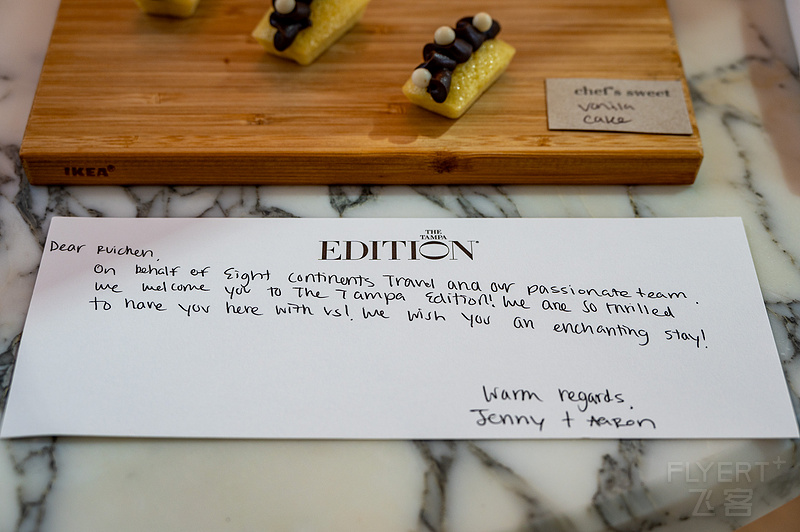 chef's sweet
vanilla
cake
IKEA
THE
TAMPA
EDITION
Dear Ruichen,
On behalf of Eight Continents Travel and our passionate team.
we welcome you to The Tampa Edition! We are so thrilled
to have you here with us! We wish you an enchanting stay!
Warm regards,
Jenny + Aaron
FLYERT+
飞客